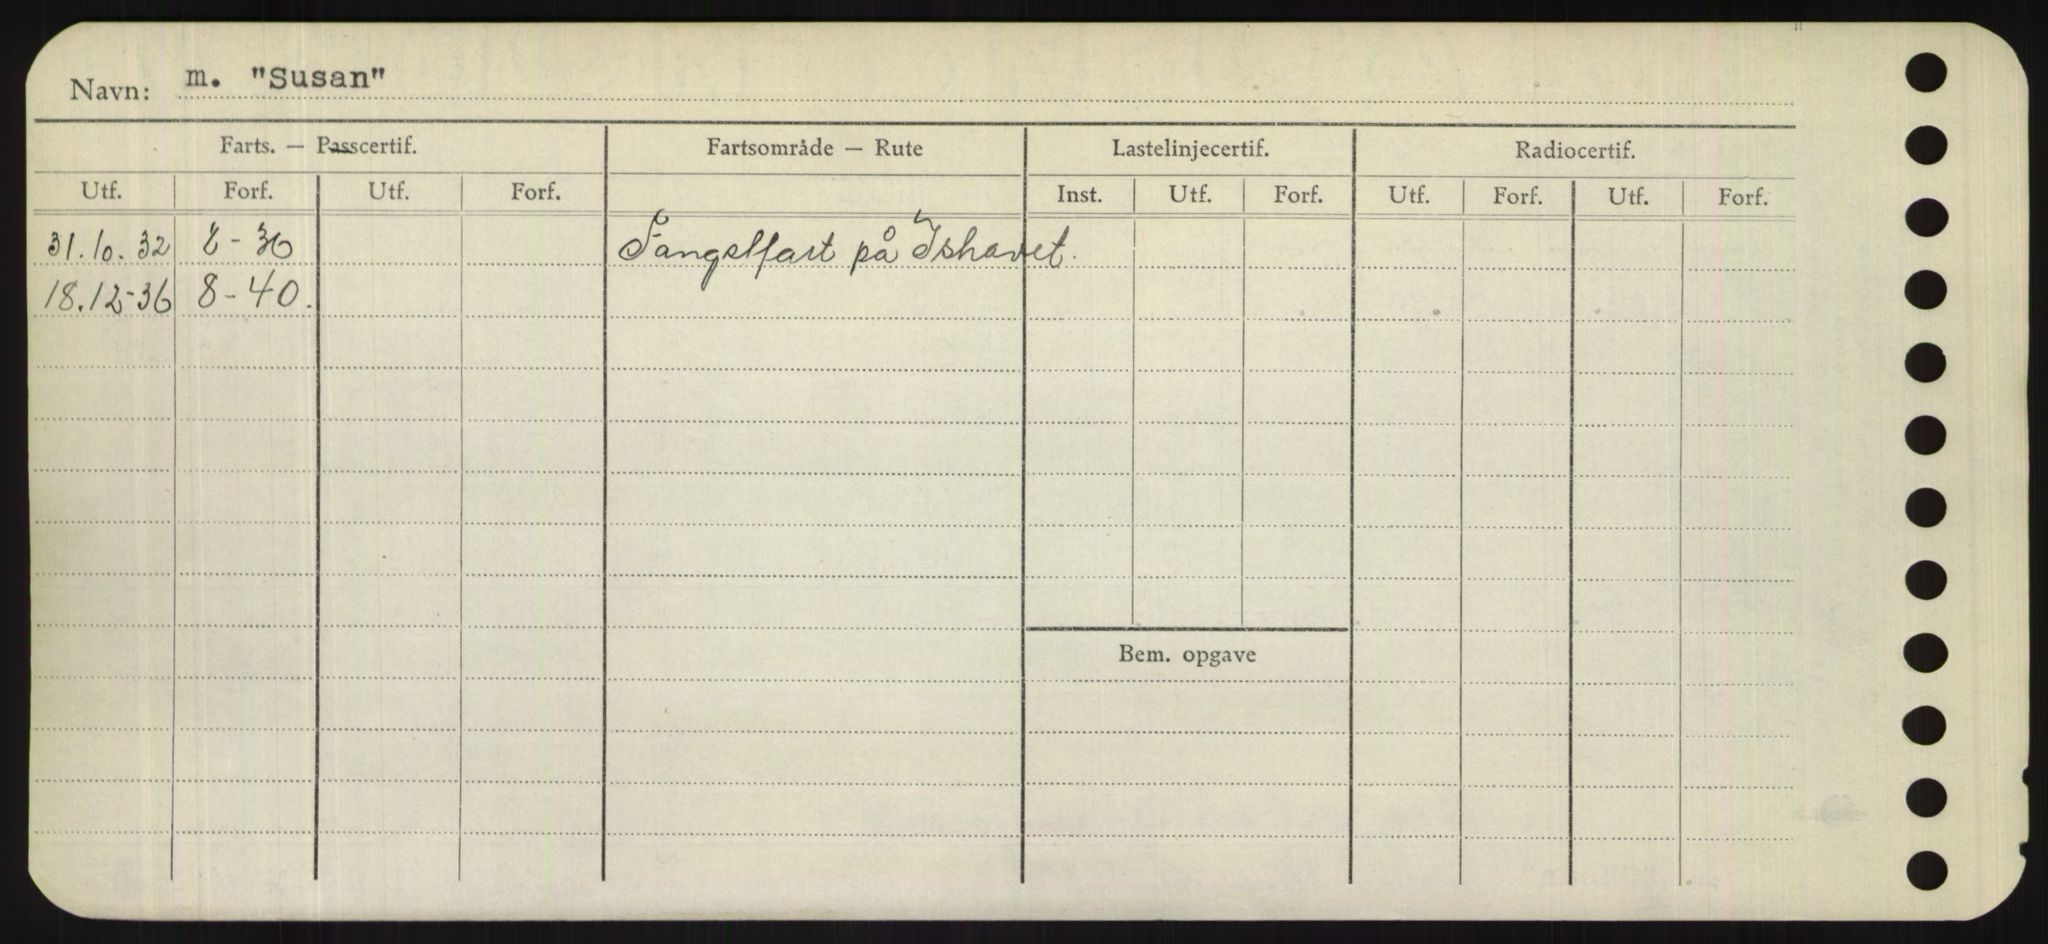 Navn: m. "Susan"
Farts. — Passcertif. Fartsområde — Rute Lastelinjecertif. Radiocertif.
Utf. Forf. Utf. Forf. Inst. Utf. Forf. Utf. Forf. Utf. Forf.
31.10.32 8-36 Fangstfart på Ishavet.
18.12-36 8-40.
Bem. opgave